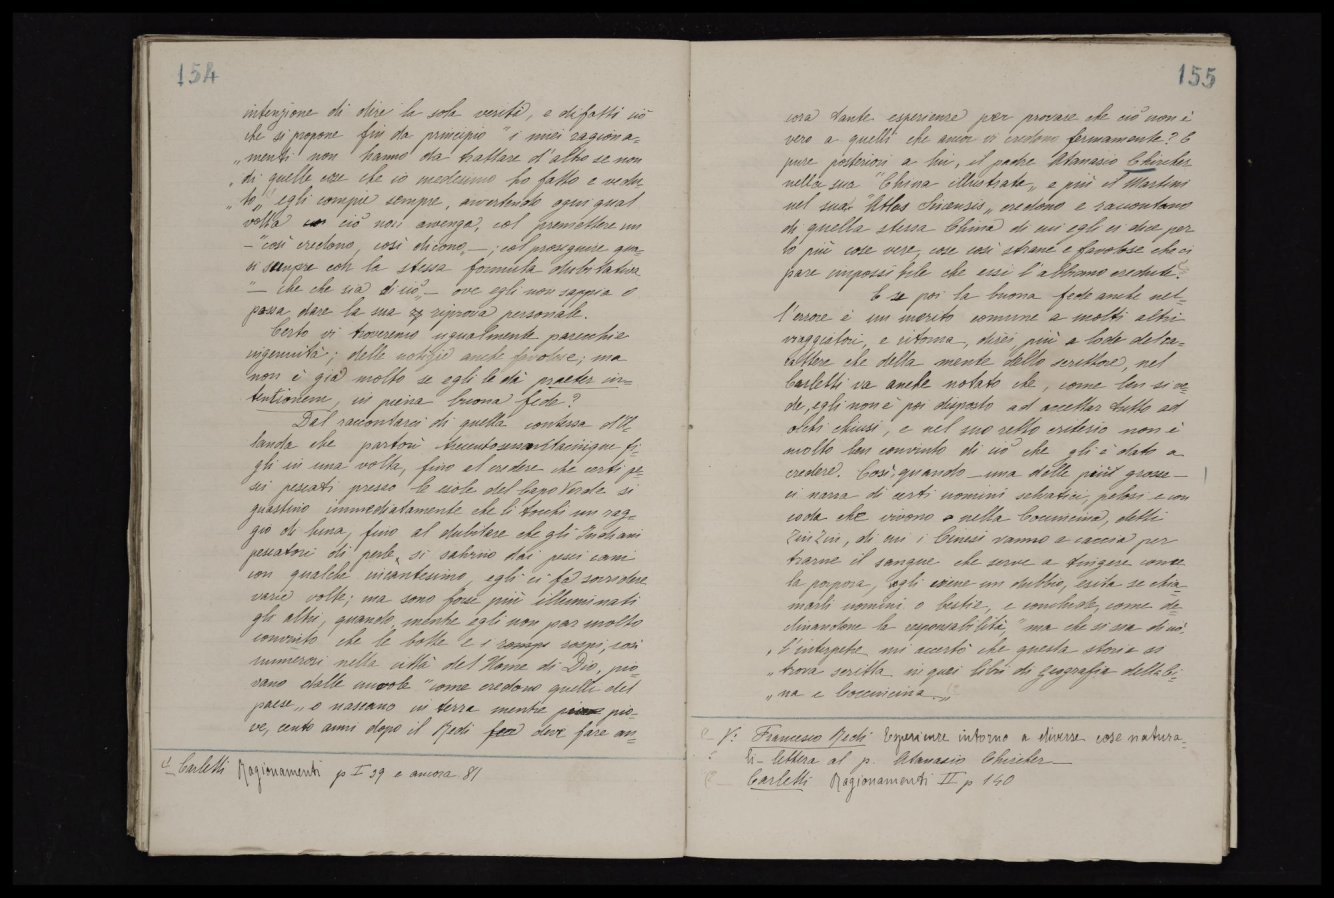 154
intenzione di dire la sola verità, e difatti ciò
che si propone fin da principio "i miei ragiona=
"menti non hanno da trattare d'altro se non
"di quelle cose che io medesimo ho fatto e vedu
"to", egli compie sempre, avvertendo ogni qual
volta ciò non avvenga, col premettere un
–"così credono, così dicono„–; col proseguire qua=
si sempre con la stessa formula dubitativa
"– che che sia di ciò„– ove egli non sappia o
possa dare la sua riprova personale.
Certo vi troveremo ugualmente parecchie
ingenuità; delle notizie anche favolose; ma
non è già molto se egli le dà praeter in=
tentionem, in piena buona fede?
Dal raccontarci di quella contessa d'O=
landa che partorì trecentosessantacinque fi=
gli in una volta, fino al credere che certi pe=
sci pescati presso le isole del Capo Verde si
guastino immediatamente che li tocchi un rag=
gio di luna, fino al dubitare che gli Indiani
pescatori di perle, si salvino dai pesci cani
con qualche incantesimo, egli ci fa sorridere
varie volte; ma sono forse più illuminati
gli altri, quando, mentre egli non par molto
convinto che le botte e i rospi, così
numerosi nella città del Nome di Dio, pio=
vano dalle nuvole "come credono quelli del
paese„ o nascano in terra mentre pio=
ve, cento anni dopo il Redi deve fare an=
Carletti Ragionamenti p I 39 e ancora 81
155
cora tante esperienze per provare che ciò non è
vero a quelli che ancor vi credono fermamente? E
pure posteriori a lui, il padre Atanasio Chircher
nella sua "China illustrata„ e più il Martini
nel suo "Atlas Sinensis„ credono e raccontano
di quella stessa China di cui egli ci dice per
lo più cose vere, cose così strane e favolose che ci
pare impossibile che essi l'abbiano credute.
E se poi la buona fede anche nel=
l'errore è un merito comune a molti altri
viaggiatori, e ritorna, direi più a lode del ca=
rattere che della mente dello scrittore, nel
Carletti va anche notato che, come ben si ve=
de, egli non è poi disposto ad accettar tutto ad
occhi chiusi, e nel suo retto criterio non è
molto ben convinto di ciò che gli è dato a
credere. Così, quando – una delle più grosse –
ci narra di certi uomini selvatici, pelosi e con
coda che vivono nella Coccincina, detti
Zinzin, di cui i Cinesi vanno a caccia per
trarne il sangue che serve a tingere come
la porpora, egli viene un dubbio, esita se chia=
marli uomini o bestie, e conclude, come de=
clinandone la responsabilità "ma che si sia di ciò,
"l'interpetre mi accertò che questa storia si
"trova scritta in quei libri di geografia della Ci=
"na e Coccincina„
V: Francesco Redi Esperienze intorno a diverse cose natura=
li – lettera al p. Atanasio Chircher –
Carletti Ragionamenti II p 140